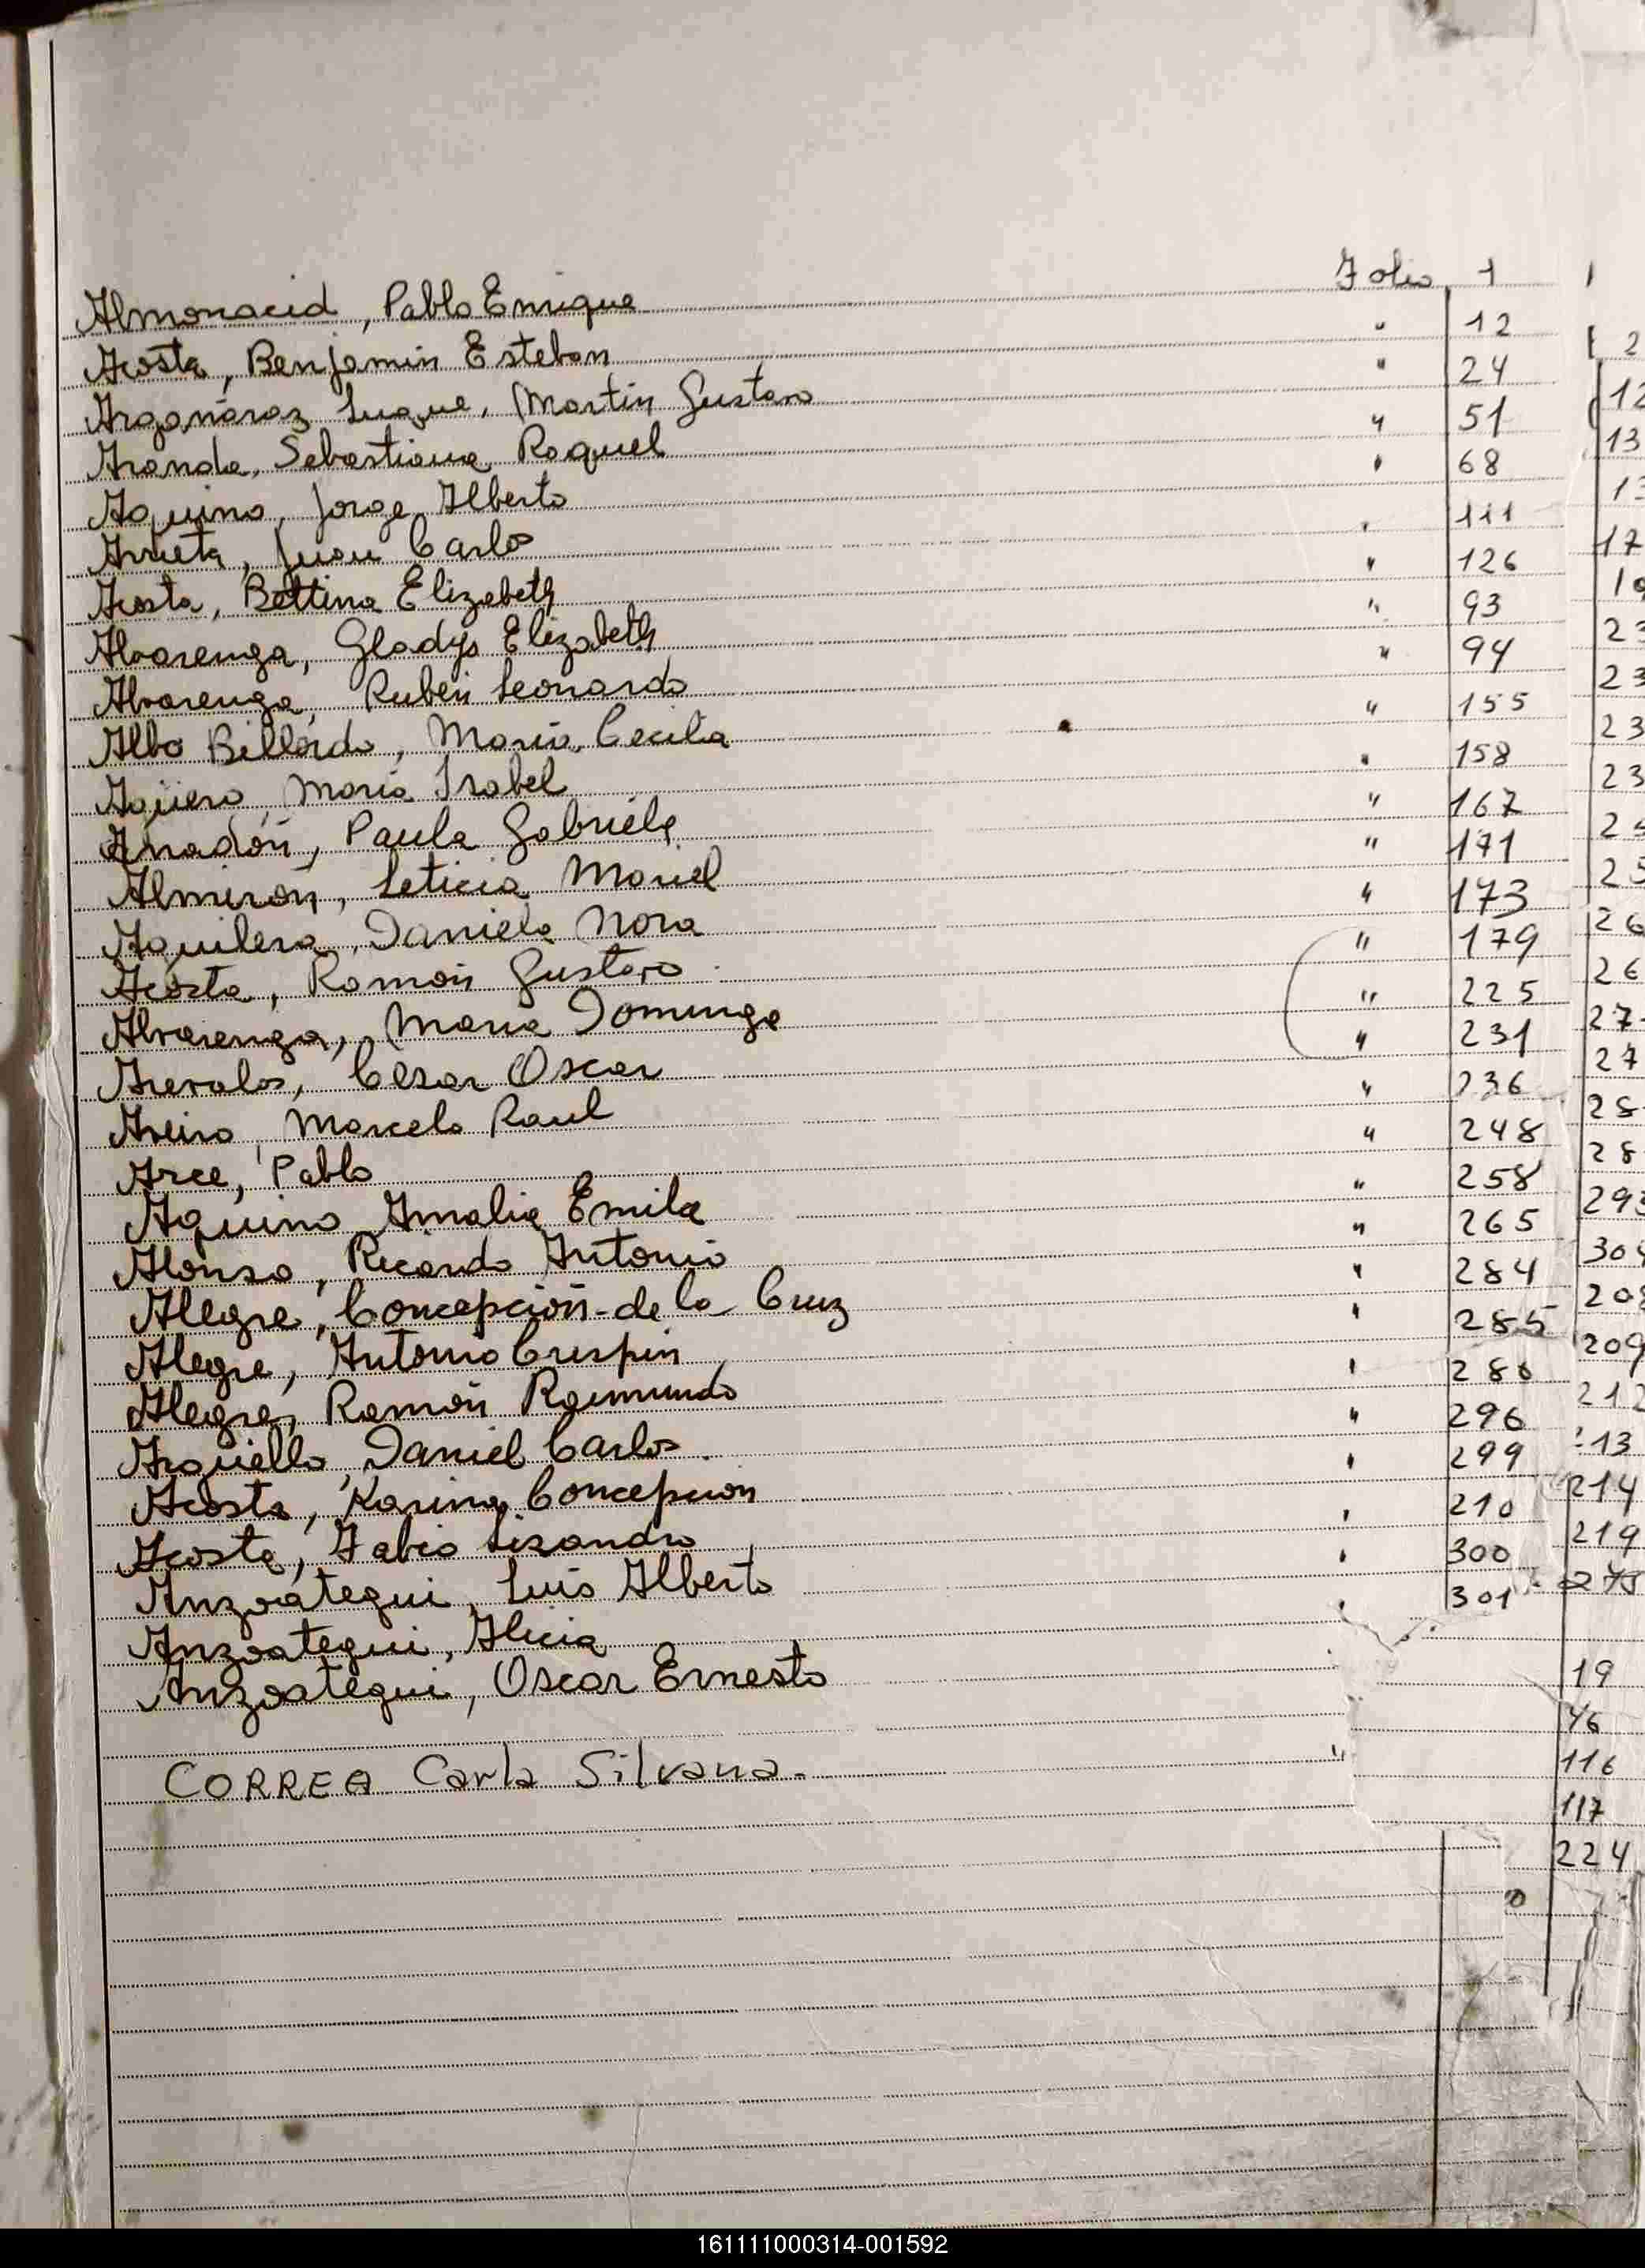 Almonacid, Pablo Enrique Folio 1
Acosta, Benjamin Esteban " 12
Argañaraz Luque, Martin Gustavo " 24
Aranda, Sebastiana Raquel " 51
Aquino, Jorge Alberto " 68
Arrieta, Juan Carlos " 111
Acosta, Bettina Elizabeth " 126
Alvarenga, Gladys Elizabeth " 93
Alvarenga, Ruben Leonardo " 94
Albo Billordo, Maria Cecilia " 155
Agüero, Maria Isabel " 158
Anadón, Paula Gabriela " 167
Almirón, Leticia Mariel " 171
Aguilera, Daniela Nora " 173
Acosta, Ramón Gustavo " 179
Alvarenga, Maria Dominga " 225
Arevalos, César Oscar " 231
Areiro, Marcelo Raul " 236
Arce, Pablo " 248
Aquino Amalia Emila " 258
Alonso, Ricardo Antonio " 265
Alegre, Concepción de la Cruz " 284
Alegre, Antonio Crispin " 285
Alegre, Ramón Raimundo " 286
Argüello, Daniel Carlos " 296
Acosta, Karina Concepción " 299
Acosta, Fabio Lisandro " 210
Anzoátegui, Luis Alberto " 300
Anzoategui, Alicia " 301
Anzoategui, Oscar Ernesto "
CORREA Carla Silvana. "
214
219
19
46
116
117
224
161111000314-001592